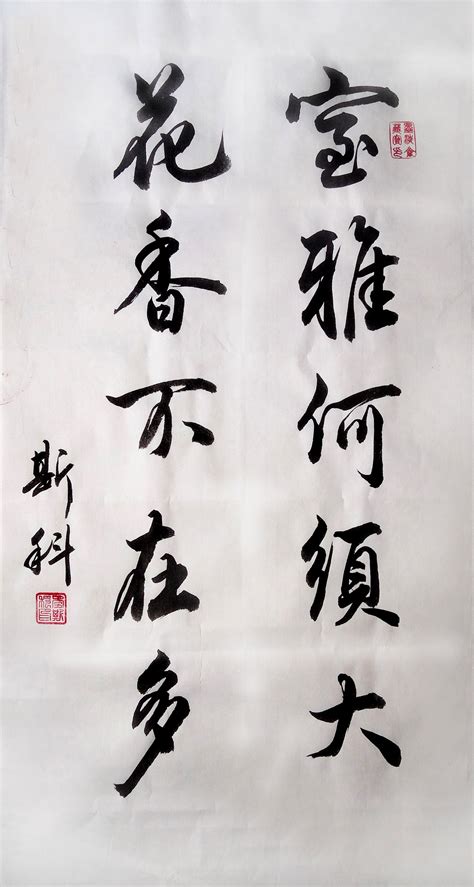 室雅何須大
花香不在多
斯科